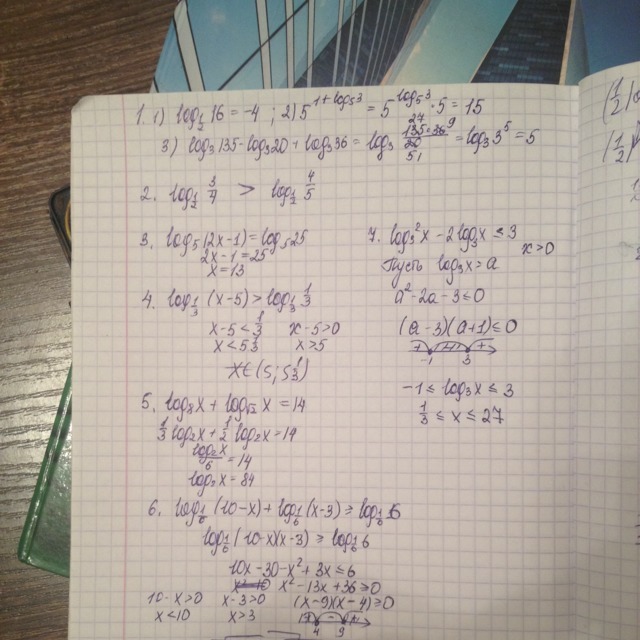 1. 1) log_{1/2} 16 = -4 ; 2) 5^{1+log_5 3} = 5^{log_5 3} · 5 = 15
3) log_3 135 - log_3 20 + log_3 36 = log_3 (135·36)/20 = log_3 3^5 = 5
2. log_{1/2} 3/4 > log_{1/2} 4/5
3. log_5 (2x-1) = log_5 25
2x-1=25
x=13
4. log_{1/3} (x-5) > log_{1/3} 1/3
x-5 < 1/3 x-5>0
x < 5 1/3 x>5
X∈(5; 5 1/3)
5. log_8 x + log_{√2} x = 14
1/3 log_2 x + 1/2 log_2 x = 14
log_2 x / 6 = 14
log_2 x = 84
6. log_{1/6} (10-x) + log_{1/6} (x-3) ≥ log_{1/6} 6
log_{1/6} (10-x)(x-3) ≥ log_{1/6} 6
10x-30-x²+3x ≤ 6
x²-13x+36 ≥ 0
10-x>0 x-3>0 (x-9)(x-4) ≥ 0
x<10 x>3
+ - +
4 9
7. log_3² x - 2log_3 x ≤ 3
x>0
Пусть log_3 x = a
a²-2a-3 ≤ 0
(a-3)(a+1) ≤ 0
-1 3
-1 ≤ log_3 x ≤ 3
1/3 ≤ x ≤ 27